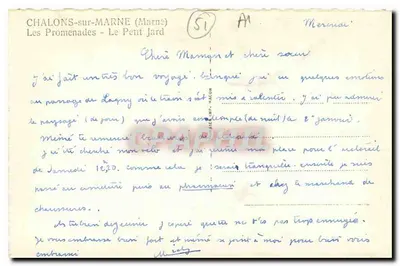 CHALONS-sur-MARNE (Marne)
Les Promenades - Le Petit Jard
51
A1
Mercredi
Chère Maman et chère sœur
J'ai fait un très bon voyage. j'ai eu quelques émotions
au passage de Lagny où le train s'est mis à ralentir. J'ai pu admirer
le paysage (de jour) que j'avais contemplé (de nuit) le 2 janvier.
Mémé
J'ai été cherché mon vélo et j'ai retenu ma place pour l'autorail
de Samedi 12h30. comme cela je serais tranquille. ensuite je suis
passé au cimetière puis au pharmacien et chez le marchand de
chaussures.
As tu bien déjeuner j'espère que tu ne t'es pas trop ennuyée.
Je vous embrasse bien fort et mémé se joint à moi pour bien vous
embrasser